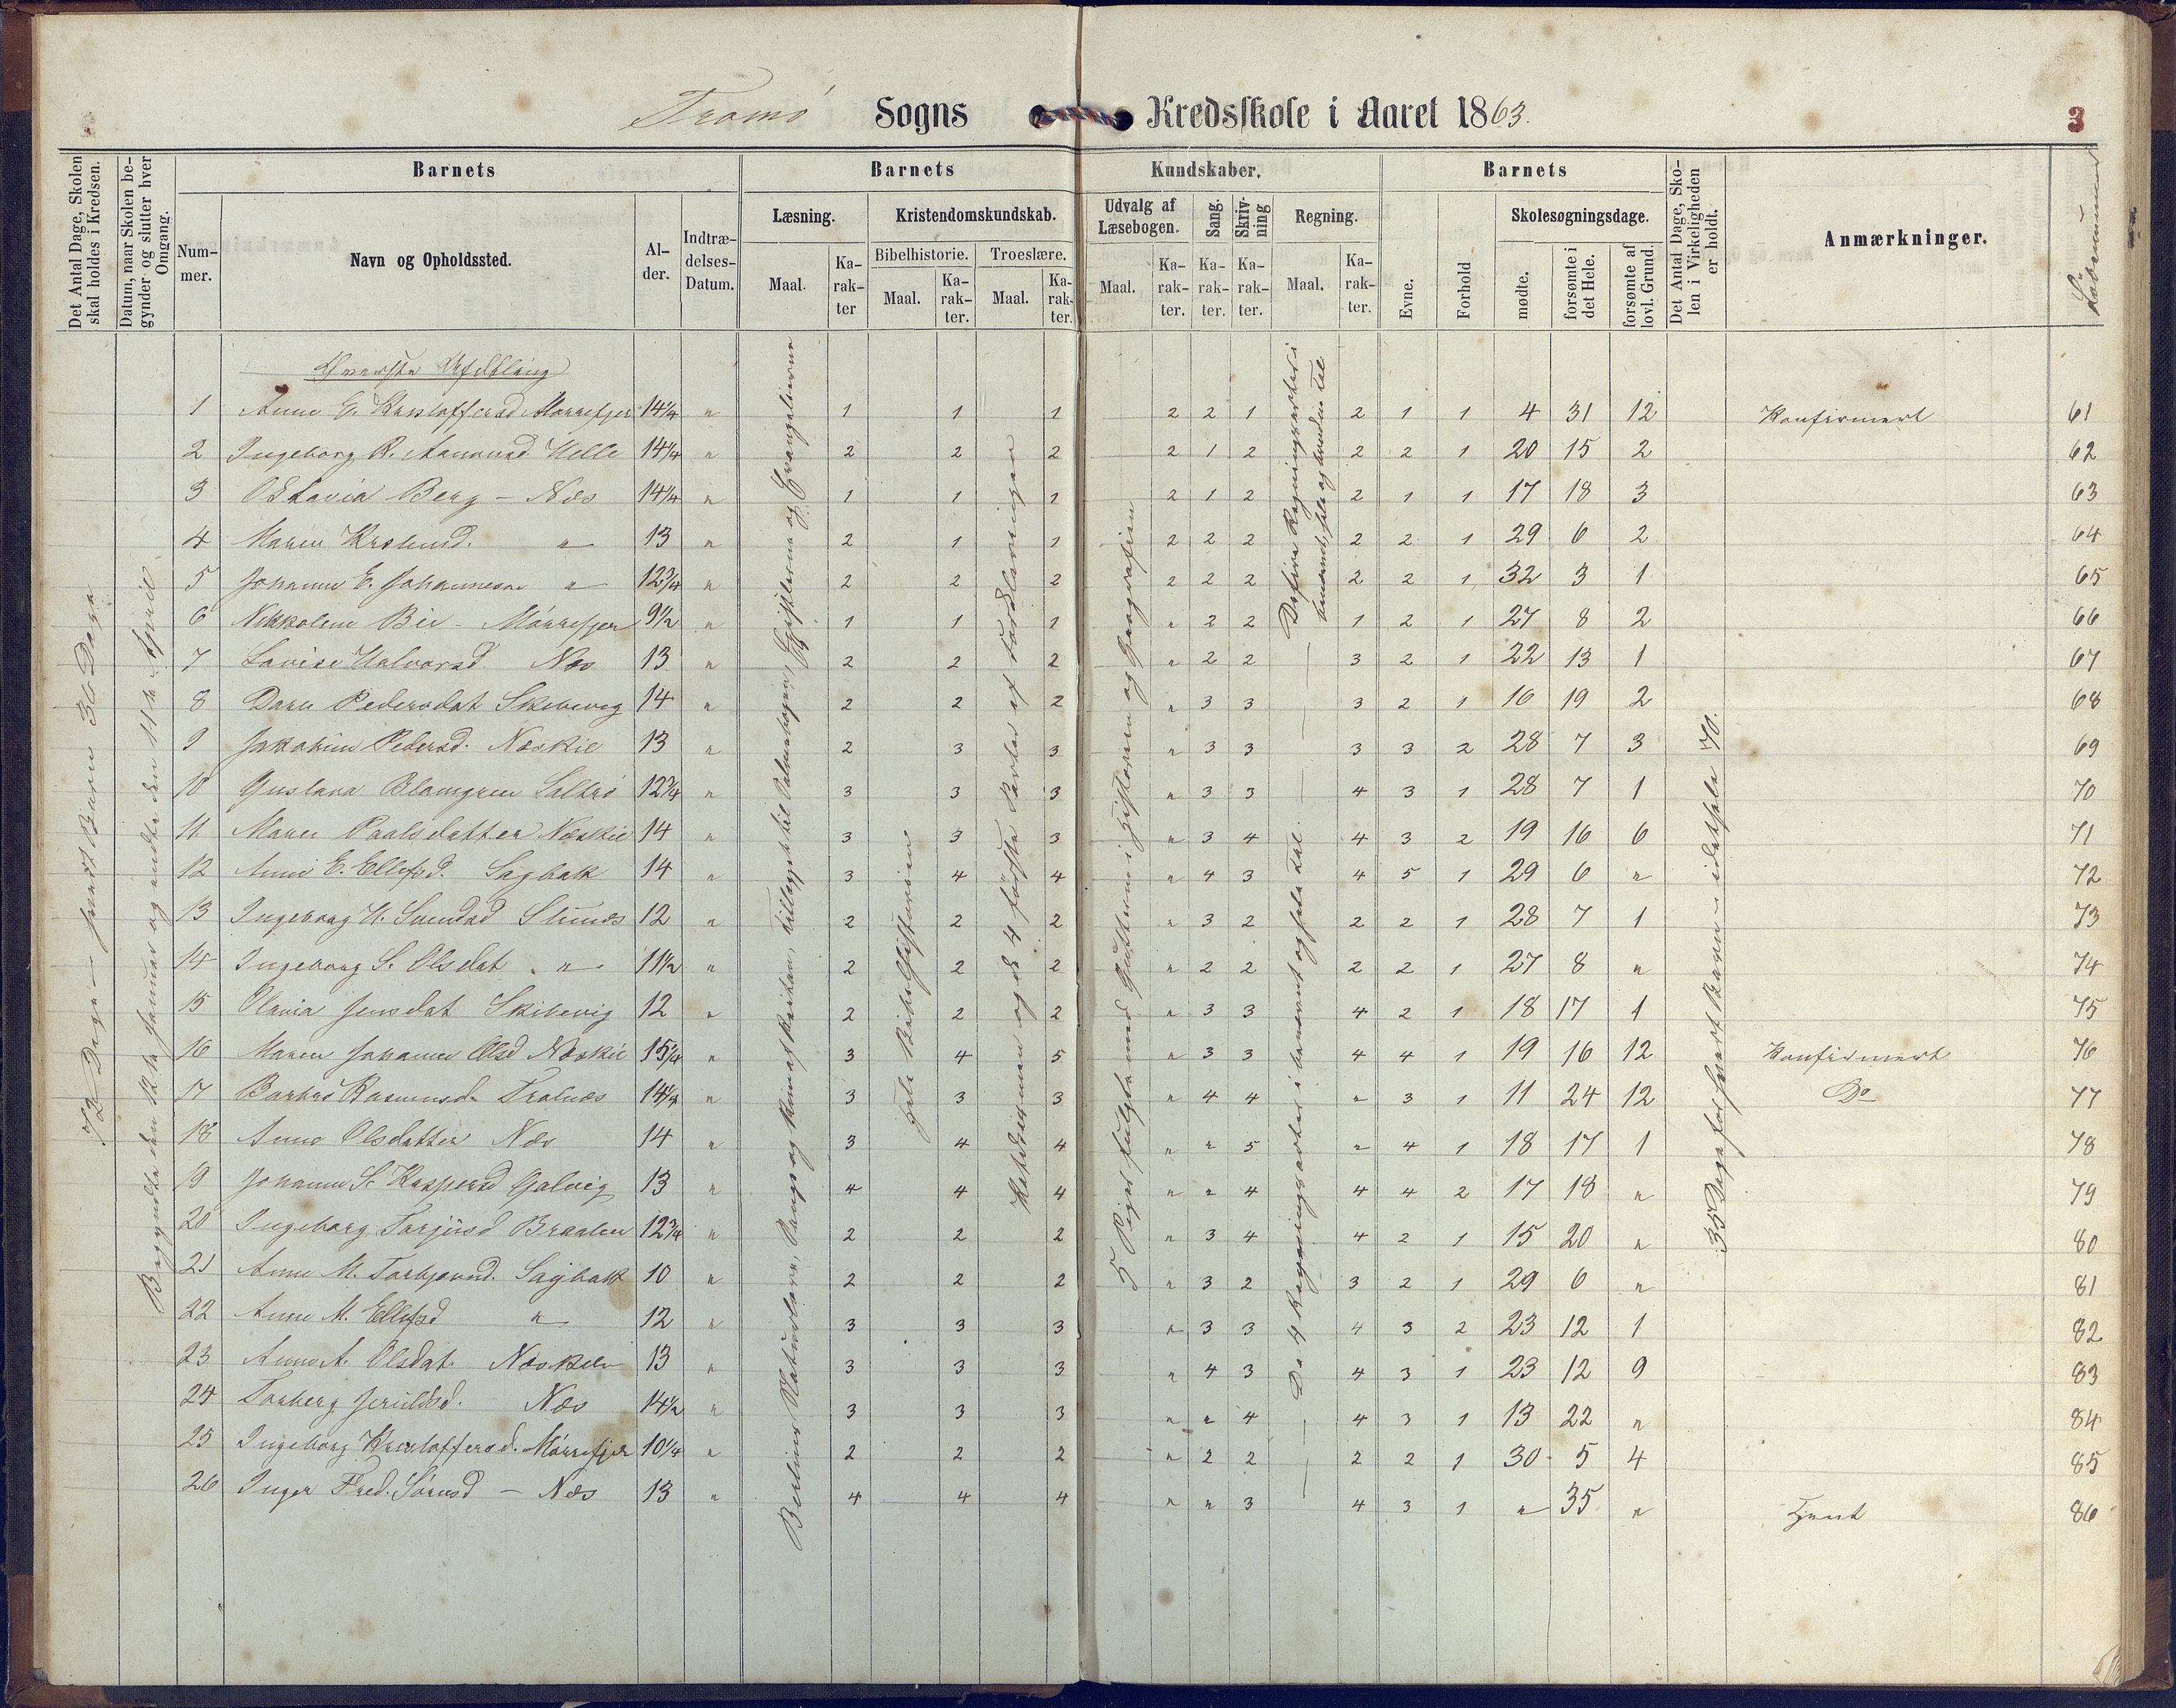 Tromø Sogns Kredsskole i Aaret 1863.
3
Det Antal Dage, Skolen skal holdes i Kredsen.
Datum, naar Skolen begynder og slutter hver Omgang.
Barnets
Nummer.
Navn og Opholdssted.
Alder.
Indtrædelses-Datum.
Barnets Kundskaber.
Læsning.
Maal.
Karakter
Kristendomskundskab.
Bibelhistorie.
Maal.
Karakter.
Troeslære.
Maal.
Karakter.
Udvalg af Læsebogen.
Maal.
Karakter.
Sang.
Karakter.
Skrivning
Karakter.
Regning.
Maal.
Karakter.
Barnets
Evne.
Forhold
Skolesøgningsdage.
mødte.
forsømte i det Hele.
forsømte af lovl. Grund.
Det Antal Dage, Skolen i Virkeligheden er holdt.
Anmærkninger.
Løbenummer
72 Dage — hvert Barn 36 Dage
Begyndte den 12te Januar og endte den 11te April
hele Bibelhistorien
5 Piger fulgte med Gutterne i Historien og Geografien
35 Dage for hvert Barn — idethele 70.
Øverste Afdeling
1 Anne E. Kristoffersd Mørrefjer 14¼ " 1 1 1 2 2 1 2 1 1 4 31 12 Konfirmert 61
2 Ingeborg R. Aanonsd Helle 14¼ " 2 2 2 2 1 2 2 2 1 20 15 2 62
3 Oktavia Berg - Næs 14¼ " 1 1 1 2 1 2 2 1 1 17 18 3 63
4 Maren " 13 " 2 1 1 2 2 2 2 2 1 29 6 2 64
5 Johanne E. Johannesen " 12¾ " 2 2 2 2 2 2 2 2 1 32 3 1 65
6 Nikkoline Bie - Mørrefjer 9½ " 1 1 1 " 2 2 1 2 1 27 8 2 66
7 Lovise Halvorsd Næs 13 " 2 2 2 " 2 2 3 2 1 22 13 1 67
8 Pedersdat Skibevig 14 " 2 2 2 " 3 3 3 2 1 16 19 2 68
9 Jakobine Pedersd. Næskil 13 " 2 3 3 " 3 3 3 3 2 28 7 3 69
10 Gustava Blomgren Saltrø 12¾ " 3 3 3 " 3 3 4 3 1 28 7 1 70
11 Maren Paalsdatter Næskil 14 " 3 3 3 " 3 4 4 3 2 19 16 6 71
12 Anne E. Ellefsd. Sagbak 14 " 3 4 4 " 4 3 4 5 1 29 6 " 72
13 Ingeborg H. Svendsd 12 " 2 2 2 " 3 2 2 2 1 28 7 1 73
14 Ingeborg S. Olsdat. " 11½ " 2 2 2 " 2 2 2 2 1 27 8 " 74
15 Olavia Jensdat Skibevig 12 " 2 2 2 " 3 3 4 2 1 18 17 1 75
16 Maren Johanne Olsd Næskil 15¼ " 3 4 5 " 3 3 4 4 1 19 16 12 Konfirmert 76
17 Barbro Rasmusd. Tralnæs 14¼ " 3 3 3 " 4 4 " 3 1 11 24 12 Do 77
18 Anne Olsdatter Næs 14 " 3 4 4 " " 5 " 4 1 18 17 1 78
19 Johanne S. Kaspersd Galvig 13 " 4 4 4 " " 4 4 4 2 17 18 " 79
20 Ingeborg Tarjusd Braaten 12¾ " 2 2 2 " 3 4 4 2 1 15 20 " 80
21 Anne M. Torbjørnsd. Sagbak 10 " 2 2 2 " 3 2 3 2 1 29 6 " 81
22 Anne M. Ellefsd " 12 " 3 3 3 " 3 3 4 3 2 23 12 1 82
23 Anne A. Olsdat. Næskilen 13 " 3 3 3 " 4 3 4 3 1 23 12 9 83
24 Torberg Jerulfsd. Næs 14½ " 3 3 3 " " 4 4 3 1 13 22 " 84
25 Ingeborg Kristoffersd. Mørrefjer 10¼ " 2 2 2 " 2 2 2 2 1 30 5 4 85
26 Inger Fred. Sørensd - Næs 13 " 4 4 4 " " 3 4 3 1 " 35 " Tjent 86